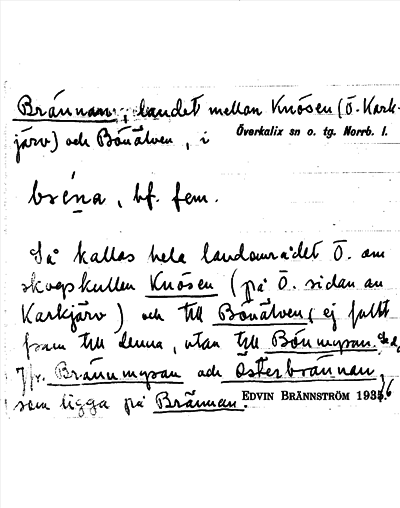 Brännan, landet mellan Knösen (Ö. Kark-
järv) och Bönälven, i Överkalix sn o. tg. Norrb. l.
bréna, bf. fem.
Så kallas hela landområdet Ö. om
skogskullen Knösen (på Ö. sidan av
Karkjärv) och till Bönälven, ej fullt
fram till denna, utan till Bönmyran.
Jfr. Brännmyran och Österbrännan,
som ligga på Brännan. EDVIN BRÄNNSTRÖM 1935.